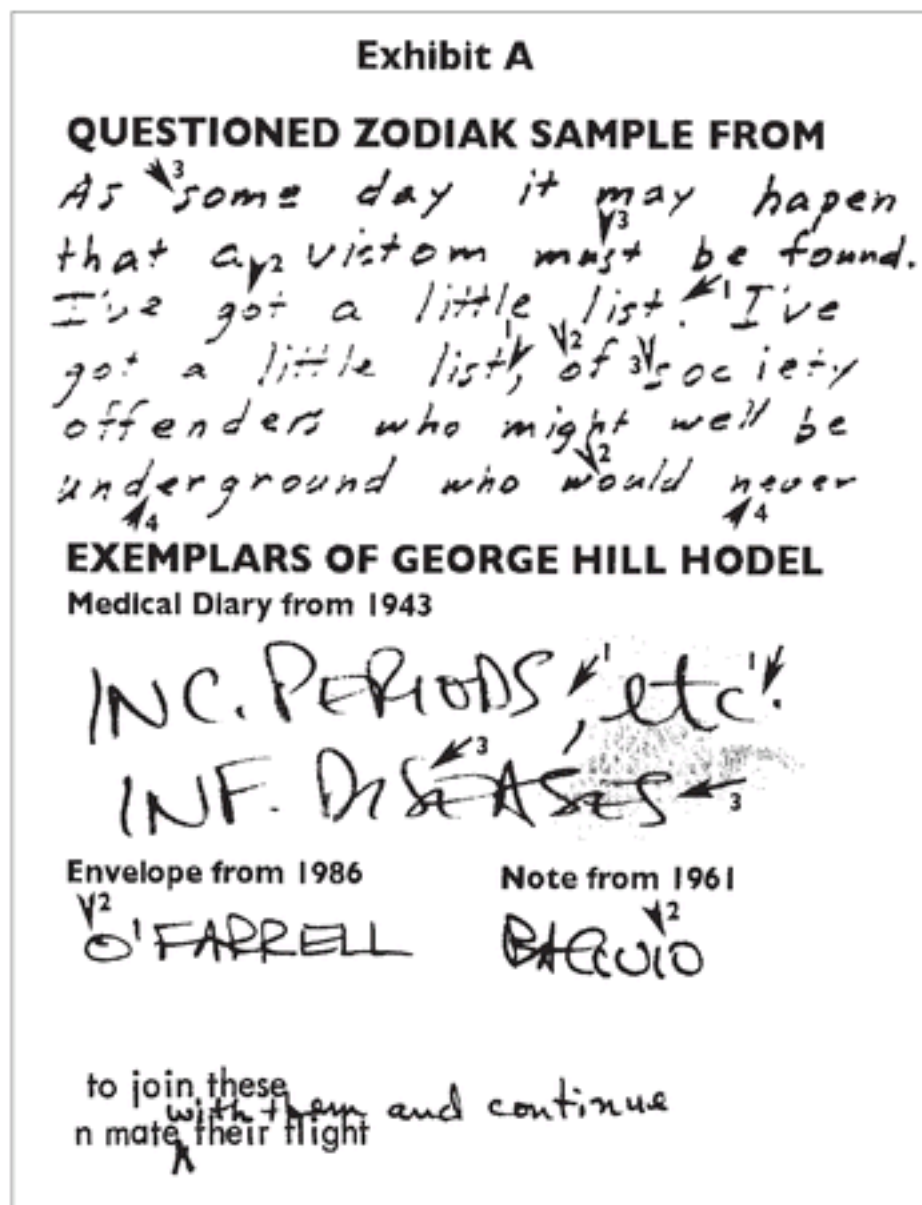 Exhibit A
QUESTIONED ZODIAK SAMPLE FROM
As 3 some day it may hapen
that a 2 victom must 3 be found.
I've got a little list. 1 I've
got a little list 1, 2 of 3 society
offenders who might well be
underground who would 2 never
4 4
EXEMPLARS OF GEORGE HILL HODEL
Medical Diary from 1943
INC. PERIODS, 1 etc. 1
INF. DISEASES 3 3
Envelope from 1986 Note from 1961
2 2
O'FARRELL BAGUIO
to join these
with them and continue
n mate their flight